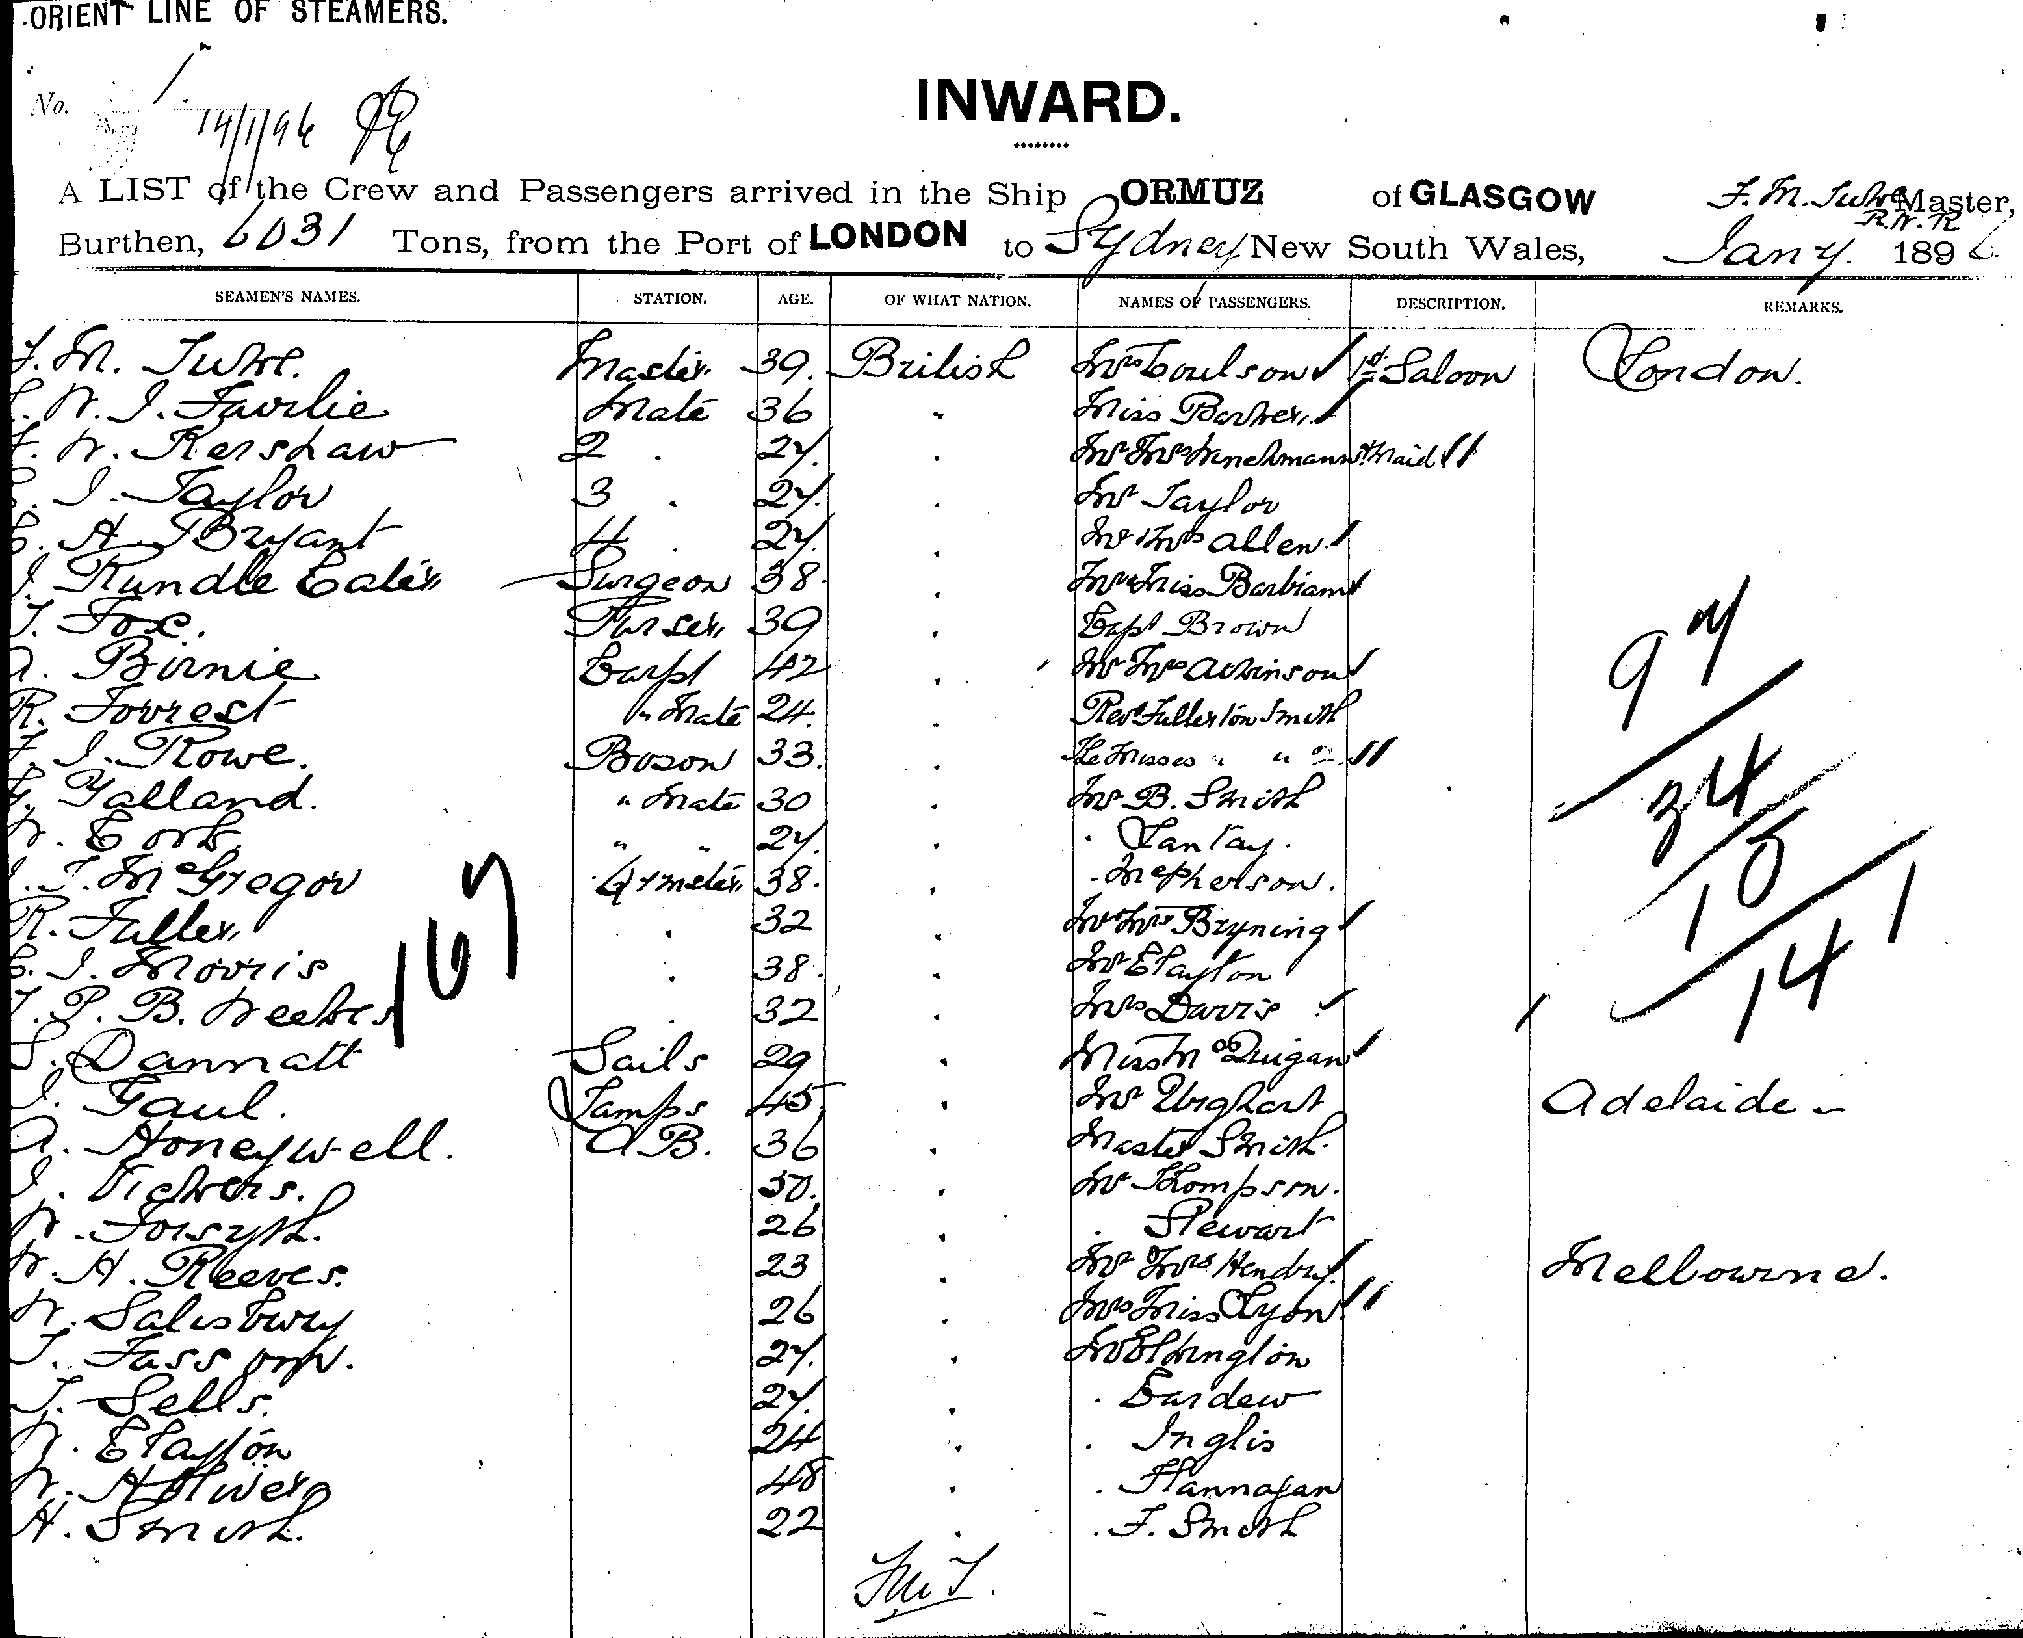 ORIENT LINE OF STEAMERS.
No.
14/1/96
INWARD.
A LIST of the Crew and Passengers arrived in the Ship ORMUZ of GLASGOW F. M. Tuke Master,
R.N.R
Burthen, 6031 Tons, from the Port of LONDON to Sydney New South Wales, Jany. 1896
SEAMEN'S NAMES. STATION. AGE. OF WHAT NATION. NAMES OF PASSENGERS. DESCRIPTION. REMARKS.
F. M. Tuke. Master 39. British Mrs Coulson 1st Saloon London.
W. J. Fairlie Mate 36 " Miss Barker
F. W. Kershaw 2 . 27. . Mr Mrs & Maid
J. Taylor 3 . 27. . Mr Taylor
C. A. Bryant 4 . 27. . Mr & Mrs Allen
J. Rundle Cater Surgeon 38. . Mr & Miss
T. Fox. Purser 39 . Capt Brown
A. Birnie Carpt 42 . Mr Mrs Atkinson
R. Forrest " Mate 24. . Revd Fullerton Smith
F. J. Rowe. Boson 33. . The Misses " " 2
G. Yalland. " Mate 30 . Mr B. Smith
W. Cork " " 27. . .
J. T. McGregor Qrmeter 38. . . McPherson.
R. Fuller . 32 . Mr Mrs Bryning
C. J. Morris . 38. . Mr Clayton
T. P. B. Weekes . 32 . Mrs Davis
S. Dannatt Sails 29 . Miss McGuigan
J. Gaul. Lamps 45 . Mr Urghart Adelaide
A. Honeywell. A.B. 36 . Master Smith.
J. Vickers. 30. . Mr Thompson.
W. Forsyth. 26 . . Stewart
W. H. Reeves. 23 . Mr Mrs Hendry Melbourne.
W. Salisbury 26 . Mrs Miss Lyon
T. 27. . Mr Elkington
T. Sells. 27. . . Cardew
W. Clayton 24 . . Inglis
W. H. Oliver 48 . . Flannagan
H. Smith. 22 . . F. Smith
167
97
34
10
141
F.M.T.